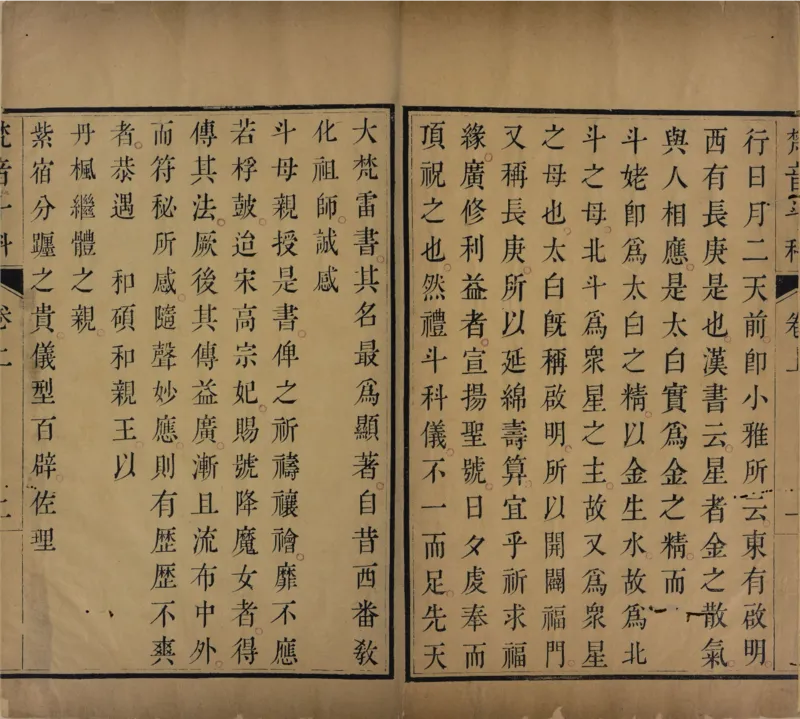 梵音斗科 卷上
行日月二天前卽小雅所云東有啟明
西有長庚是也漢書云星者金之散氣
與人相應是太白實爲金之精而
斗姥卽爲太白之精以金生水故爲北
斗之母北斗爲衆星之主故又爲衆星
之母也太白旣稱啟明所以開闢福門
又稱長庚所以延綿壽算宜乎祈求福
緣廣修利益者宣揚聖號日夕虔奉而
頂祝之也然禮斗科儀不一而足先天
大梵雷書其名最爲顯著自昔西番敎
化祖師誠感
斗母親授是書俾之祈禱禳禬靡不應
若桴皷迨宋高宗妃賜號降魔女者得
傳其法厥後其傳益廣漸且流布中外
而符秘所感隨聲妙應則有歷歷不爽
者恭遇 和碩和親王以
丹楓繼體之親
紫宿分躔之貴儀型百辟佐理
梵音斗科 卷上